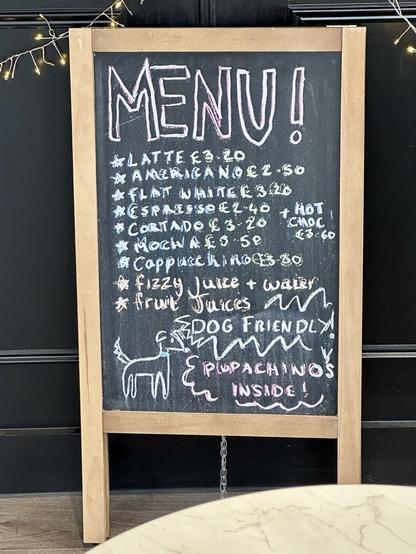 MENU!
☆ LATTE £3.20
☆ AMERICANO £2.50
☆ FLAT WHITE £3.20
☆ ESPRESSO £2.40
☆ CORTADO £3.20
+ HOT
CHOC
£3.60
☆ MOCHA
☆ Cappucchino £3.80
☆ fizzy juice + water
☆ fruit juices
DOG FRIENDLY!
PUPACHINOS
INSIDE!